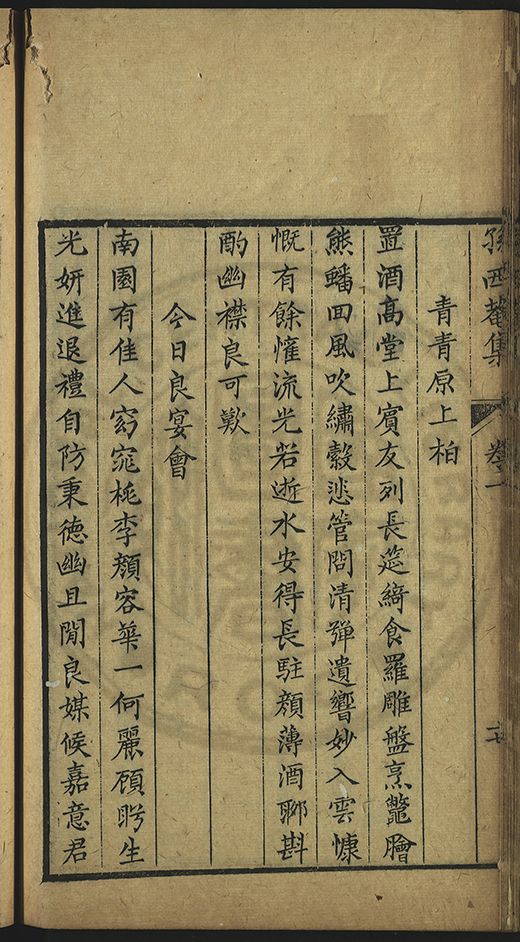 孫西菴集　卷一　二
青青原上柏
置酒高堂上賓友列長筵綺食羅雕盤烹鼈膾
熊蟠回風吹繡縠悲管問清彈遺響妙入雲慷
慨有餘懽流光若逝水安得長駐顏薄酒聊斟
酌幽襟良可歎
今日良宴會
南國有佳人窈窕桃李顏容華一何麗顧盻生
光妍進退禮自防秉德幽且閒良媒候嘉意君